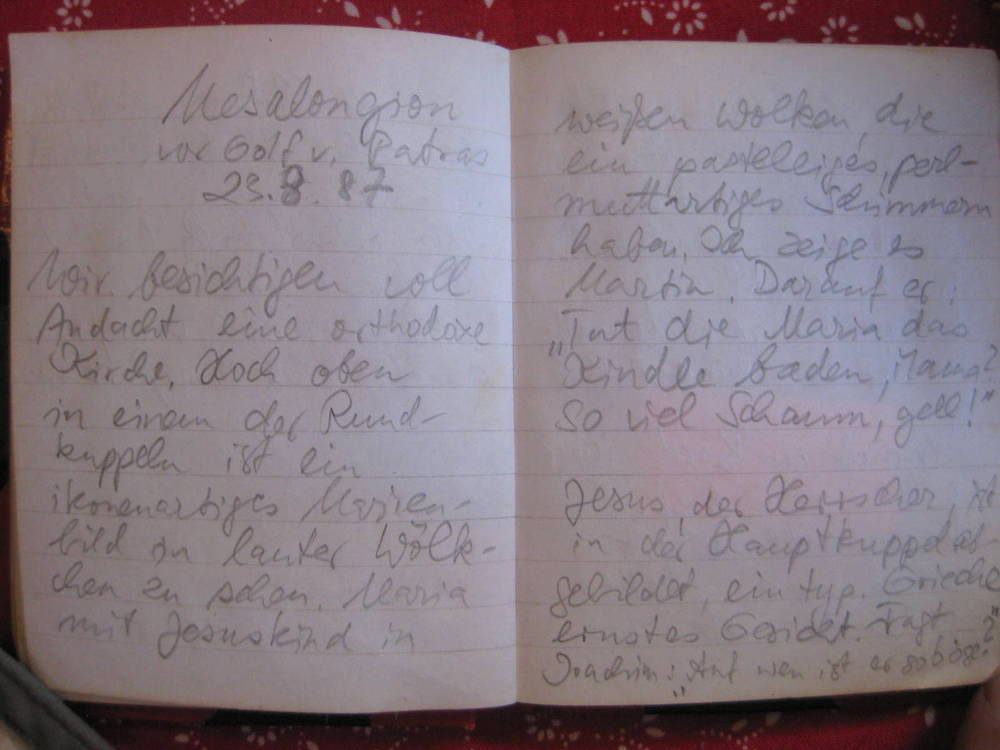 Mesalongion
vor Golf v. Patras
23.8.87
Wir besichtigen voll
Andacht eine orthodoxe
Kirche. Hoch oben
in einem der Rund-
kuppeln ist ein
ikonenartiges Marien-
bild in lauter Wölk-
chen zu sehen. Maria
mit Jesuskind in
weißen Wolken, die
ein pastelliges, perl-
muttartiges Schimmern
haben. Ich zeige es
Martin. Darauf er:
„Tut die Maria das
Kindle baden, Mama?
So viel Schaum, gell!"
Jesus, der Herrscher, ist
in der Hauptkuppel ab-
gebildet, ein typ. Griech
ernstes Gesicht. Fragt
Joachim: „Auf wen ist er so böse?"